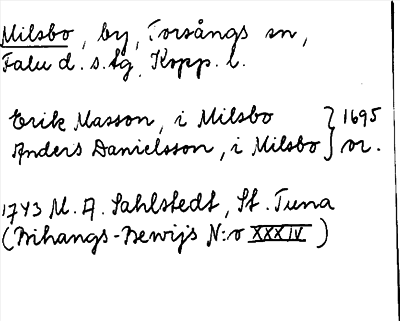 Milsbo, by, Torsångs sn,
Falu d. s. tg. Kopp. l.
Erik Masson, i Milsbo } 1695
Anders Danielsson, i Milsbo } or.
1743 M. A. Sahlstedt, St. Tuna
(Bihangs-Bewijs N:o XXXIV)